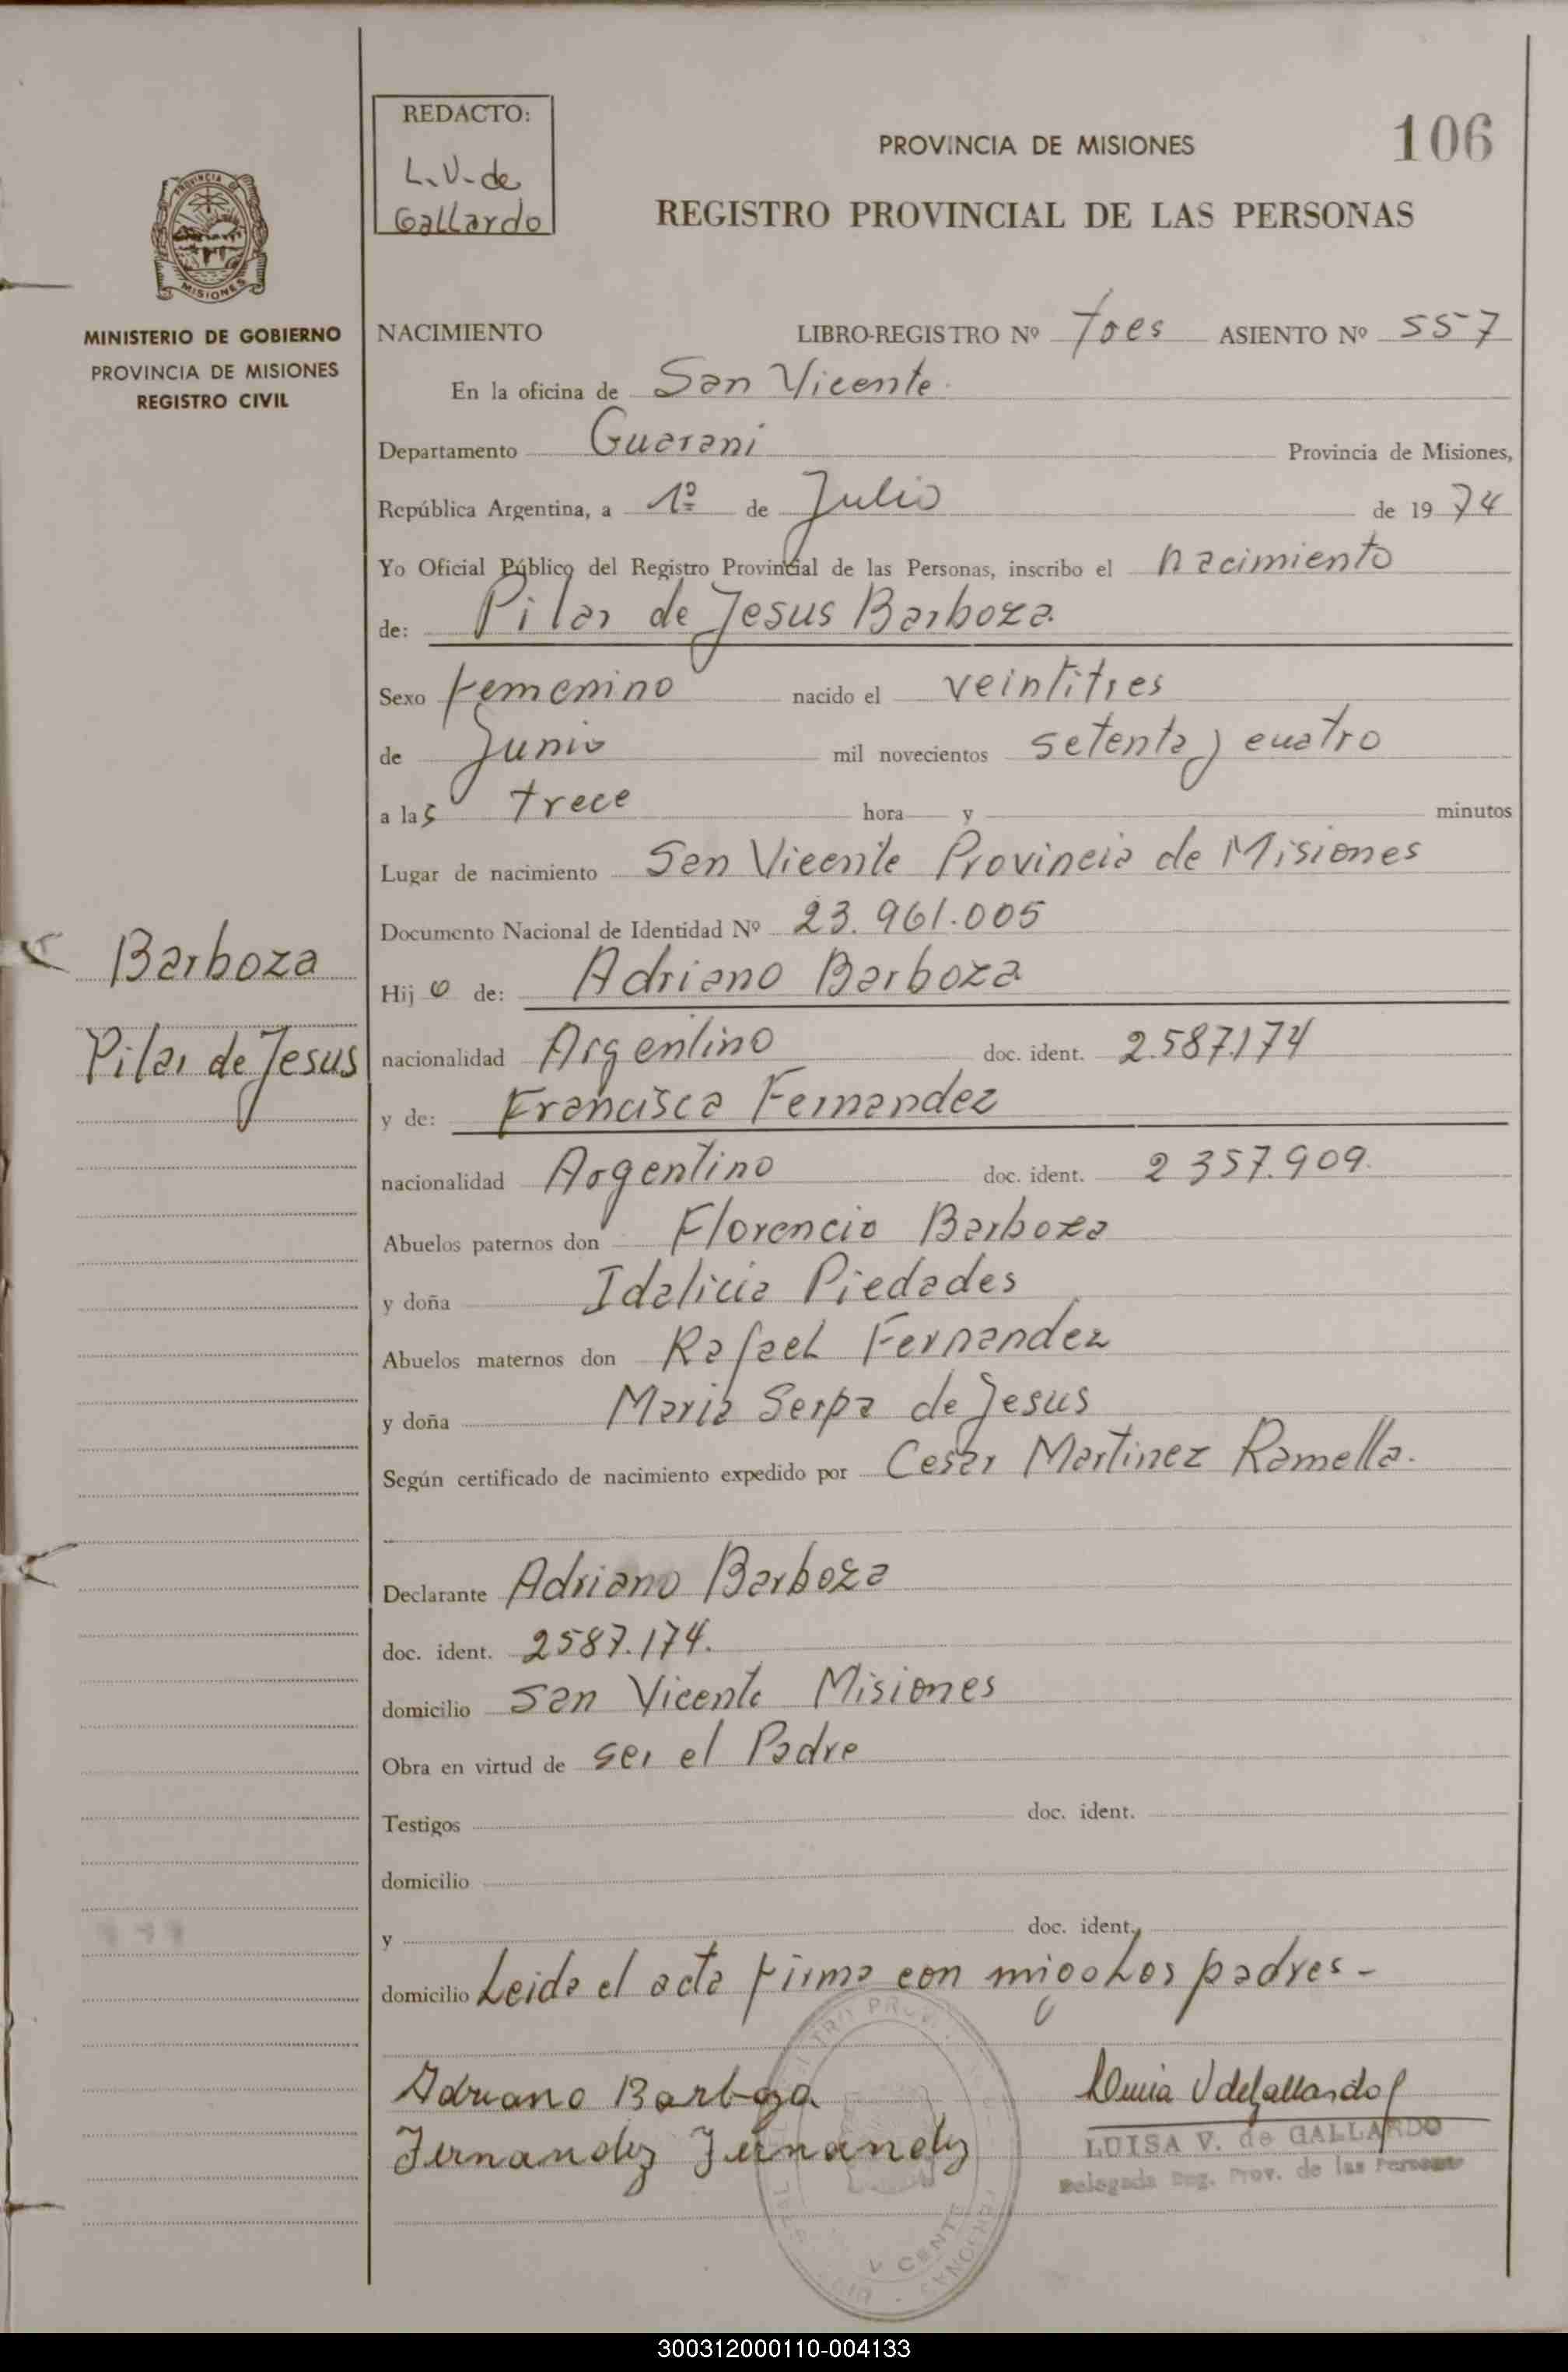 REDACTO:
L.V. de
Gallardo
PROVINCIA DE MISIONES
106
REGISTRO PROVINCIAL DE LAS PERSONAS
PROVINCIA DE
MISIONES
MINISTERIO DE GOBIERNO
PROVINCIA DE MISIONES
REGISTRO CIVIL
NACIMIENTO LIBRO-REGISTRO Nº tres ASIENTO Nº 557
En la oficina de San Vicente
Departamento Guarani Provincia de Misiones,
República Argentina, a 1º de Julio de 1974
Yo Oficial Público del Registro Provincial de las Personas, inscribo el nacimiento
de: Pilar de Jesus Barboza
Sexo femenino nacido el veintitres
de Junio mil novecientos setenta y cuatro
a las trece hora y minutos
Lugar de nacimiento San Vicente Provincia de Misiones
Documento Nacional de Identidad Nº 23.961.005
Barboza
Pilar de Jesus
Hija de: Adriano Barboza
nacionalidad Argentino doc. ident. 2.587.174
y de: Francisca Fernandez
nacionalidad Argentino doc. ident. 2 357.909.
Abuelos paternos don Florencio Barboza
y doña Idalicia Piedades
Abuelos maternos don Rafael Fernandez
y doña Maria Serpa de Jesus
Según certificado de nacimiento expedido por Cesar Martinez Ramella.
Declarante Adriano Barboza
doc. ident. 2587.174.
domicilio San Vicente Misiones
Obra en virtud de ser el Padre
Testigos doc. ident.
domicilio
y doc. ident.
domicilio Leida el acta firma con migo Los padres -
Adriano Barboza
Fernandez Fernandez
LUISA V. de GALLARDO
Delegada Reg. Prov. de las Personas
300312000110-004133